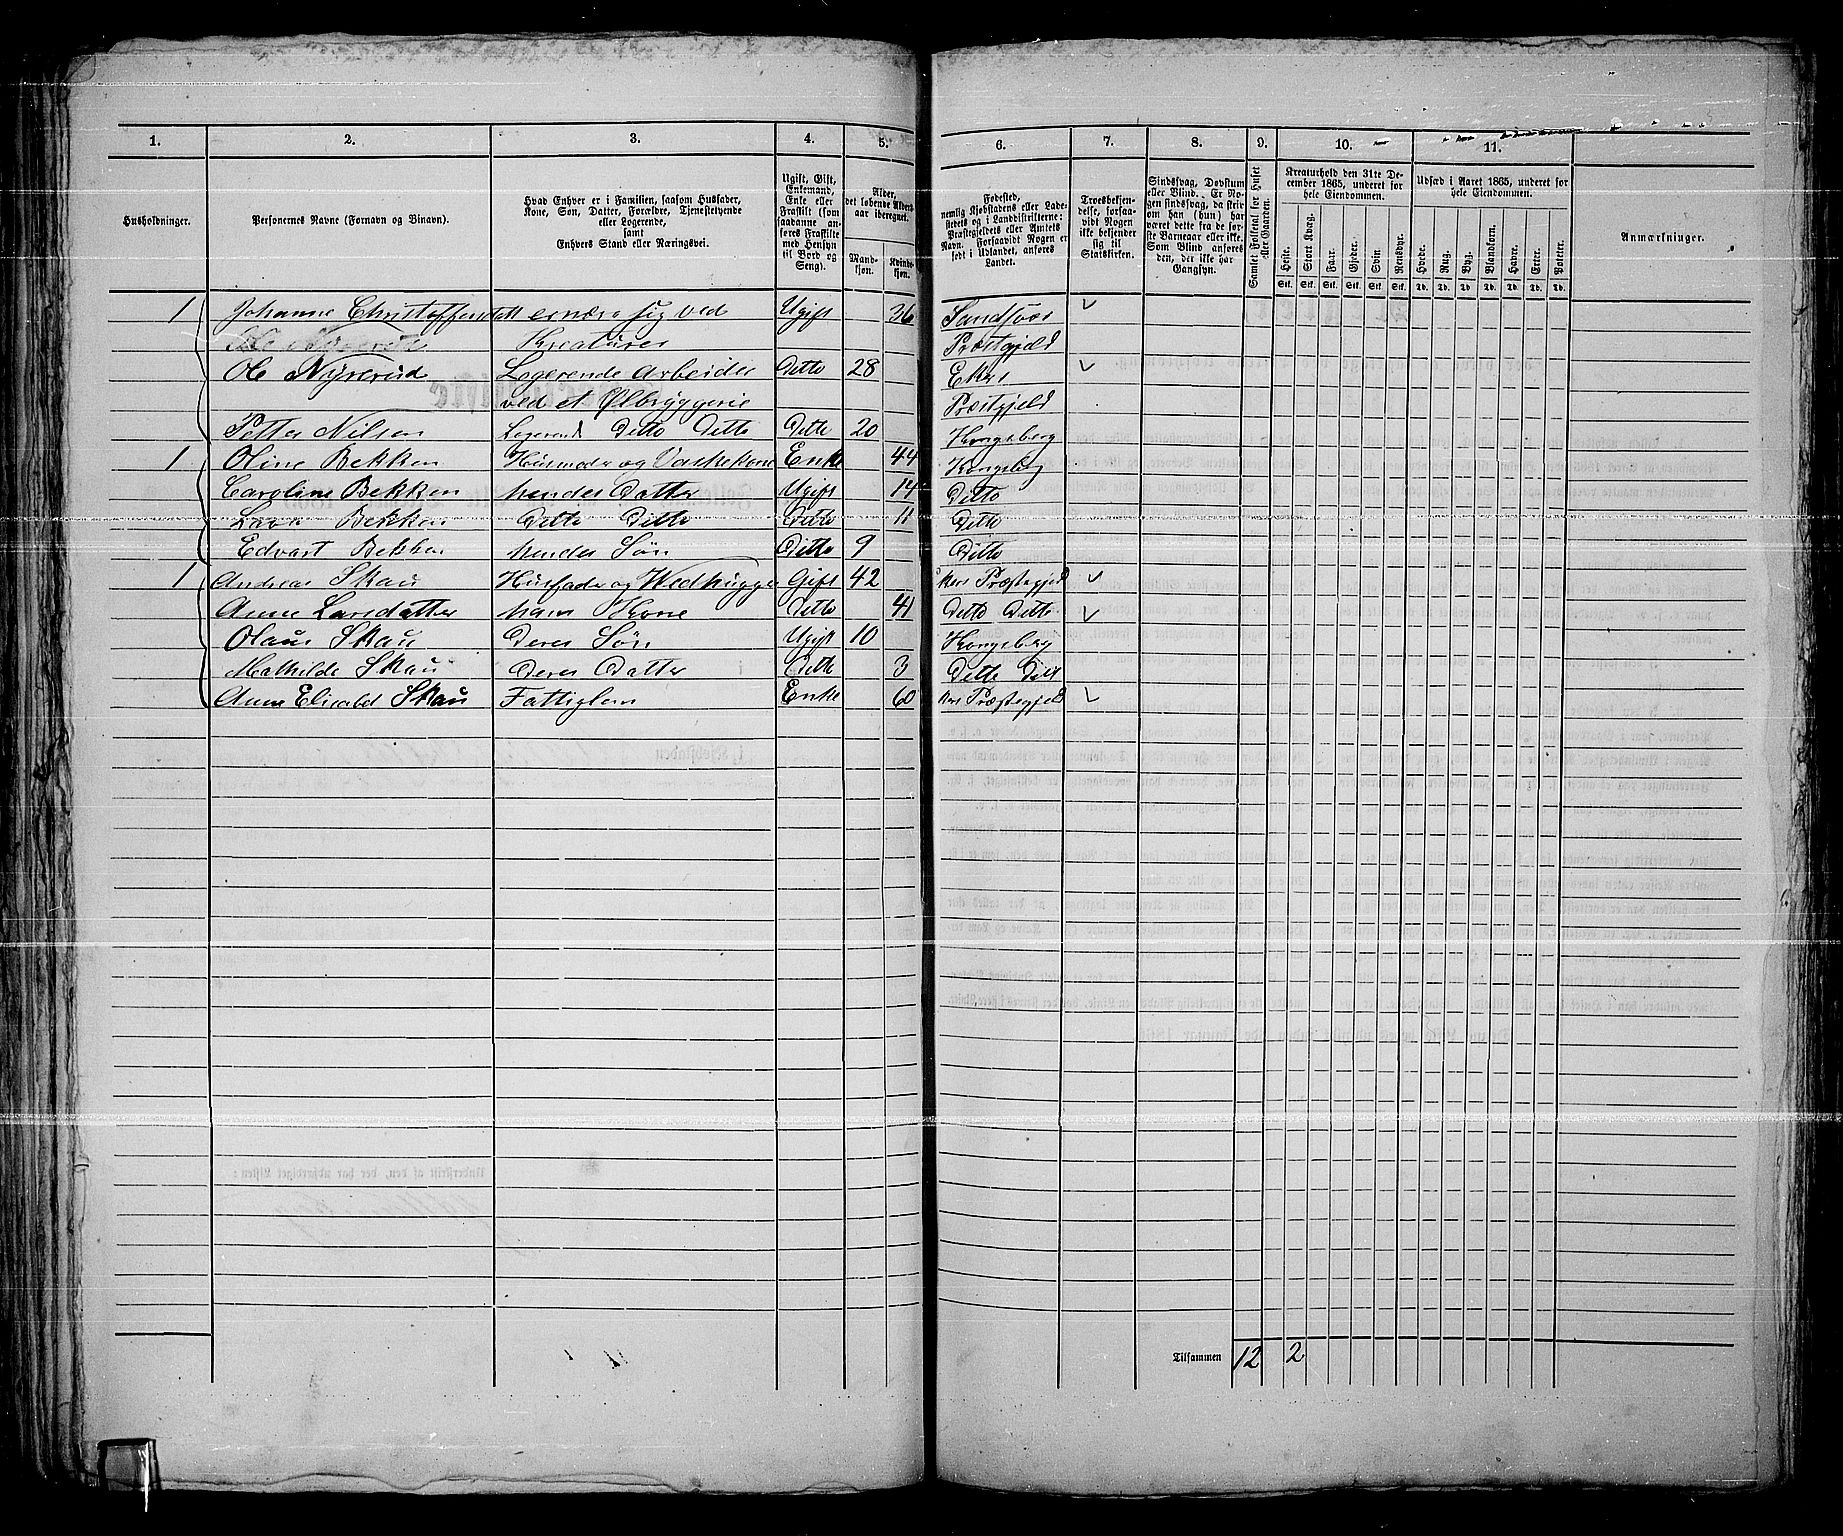 1. 2. 3. 4. 5. 6. 7. 8. 9. 10. 11.
Husholdninger.
Personernes Navne (Fornavn og Binavn).
Hvad Enhver er i Familien, saasom Husfader,
Kone, Søn, Datter, Forældre, Tjenestetyende
eller Logerende,
samt
Enhvers Stand eller Næringsvei.
Ugift, Gift,
Enkemand,
Enke eller
Fraskilt (som
saadanne an-
føres Fraskilte
med Hensyn
til Bord og
Seng).
Alder,
det løbende Alders-
aar iberegnet.
Mand-
kjøn.
Kvinde-
kjøn.
Fødested,
nemlig Kjøbstadens eller Lade-
stedets og i Landdistrikterne:
Præstegjeldets eller Amtets
Navn. Forsaavidt Nogen er
født i Udlandet, anføres
Landet.
Troesbekjen-
delse, forsaa-
vidt Nogen
ikke bekjender
sig til
Statskirken.
Sindssvag, Døvstum
eller Blind. Er No-
gen sindssvag, da skriv
om han (hun) har
været dette fra de før-
ste Barneaar eller ikke.
Som Blind anføres
den, der ikke har
Gangsyn.
Samlet Folketal for Huset
eller Gaarden.
Kreaturhold den 31te De-
cember 1865, underet for
hele Eiendommen.
Heste. Stort Kvæg. Faar. Gjeder. Svin. Rensdyr.
Stk. Stk. Stk. Stk. Stk. Stk.
Udsæd i Aaret 1865, underet for
hele Eiendommen.
Hvede. Rug. Byg. Blandkorn. Havre. Erter. Poteter.
Td. Td. Td. Td. Td. Td. Td.
Anmærkninger.
1 Johanne Christoffersdatt ernære sig ved Ugift 36 Sandsvær
Ole Nyrerud Kreaturer Præstgjeld
Ole Nyrerud Logerende Arbeider Ditto 28 Eker
ved et Ølbryggerie Præstgjeld
Petter Nilsen Logerend Ditto Ditto Ditto 20 Kongsberg
1 Oline Bekken Husmoder og Vaskekone Enke 44 Kongsberg
Caroline Bekken hendes Datter Ugift 14 Ditto
Bekken Ditto Ditto Ditto 11 Ditto
Edvart Bekken hendes Søn Ditto 9 Ditto
1 Andreas Skau Husfader og Wedhugger Gift 42 Ekers Præstegjeld
Anne Larsdatter hans Kone Ditto 41 Ditto Ditto
Olaus Skau Deres Søn Ugift 10 Kongsberg
Mathilde Skau Deres Datter Ditto 3 Ditto Ditt
Anne Elisabet Skau Fattiglem Enke 60 Ekers Præstegjeld
Tilsammen 12 2